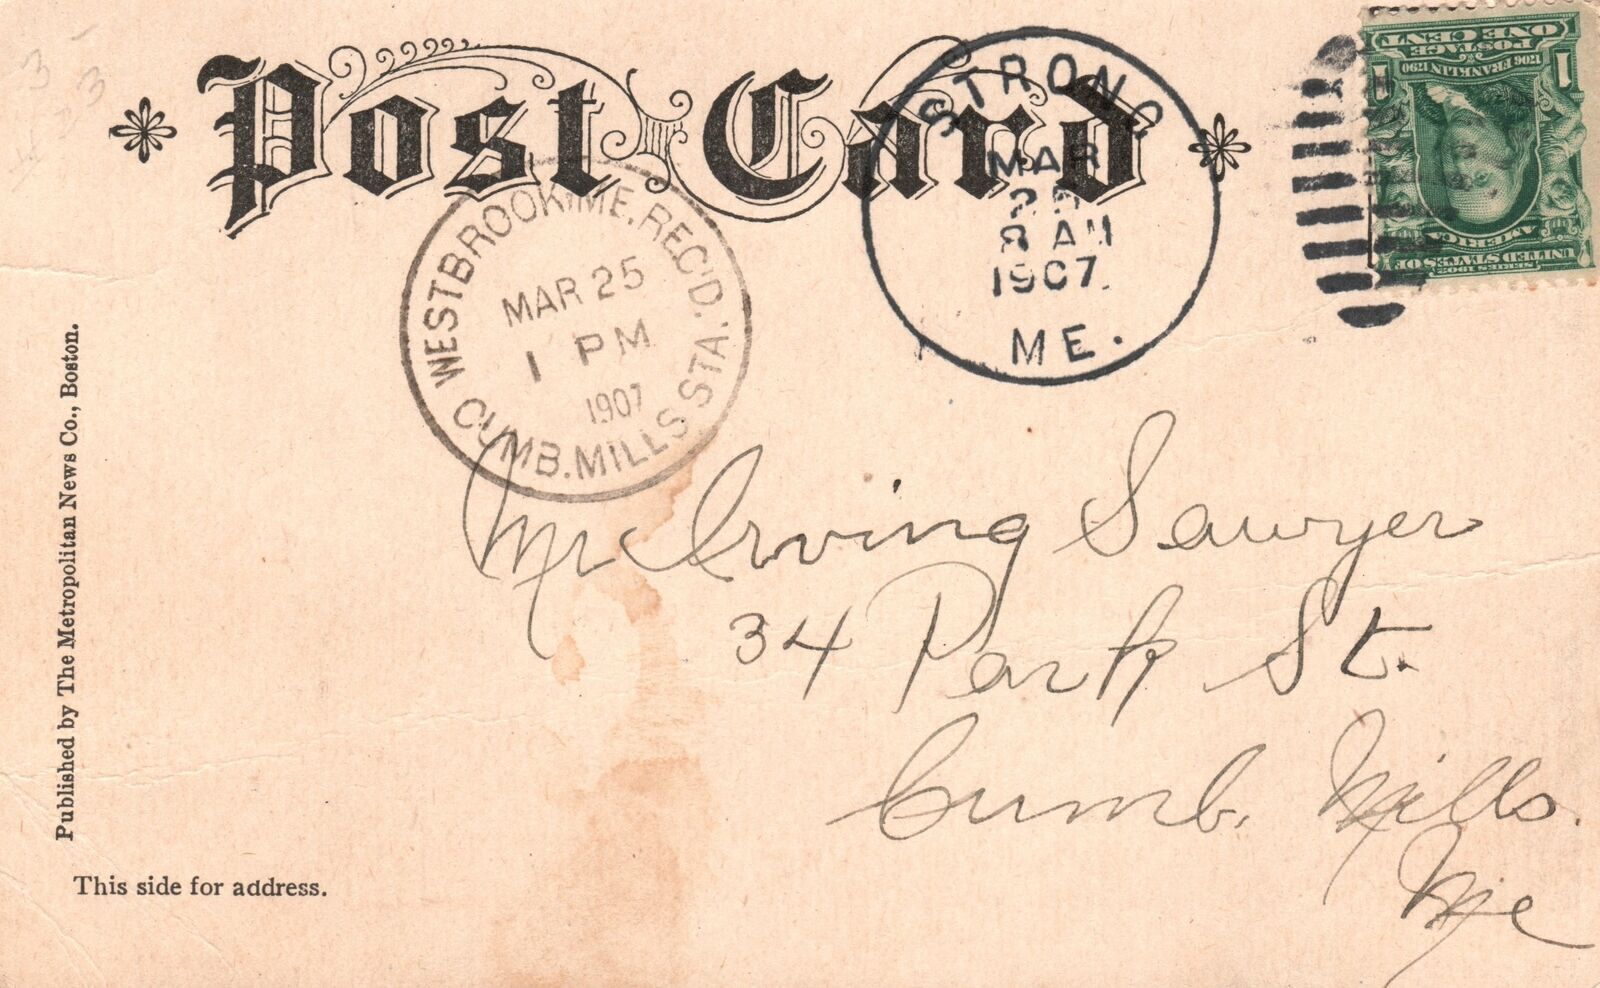 Post Card
STRONG
MAR
25
8 AM
1907.
ME.
WESTBROOK, ME. REC'D.
MAR 25
1 PM
1907
CUMB. MILLS STA.
SERIES 1902
UNITED STATES OF
AMERICA
1706 FRANKLIN 1790
POSTAGE
ONE CENT
1 1
Mr Irving Sawyer
34 Park St.
Cumb. Mills.
Me
Published by The Metropolitan News Co., Boston.
This side for address.